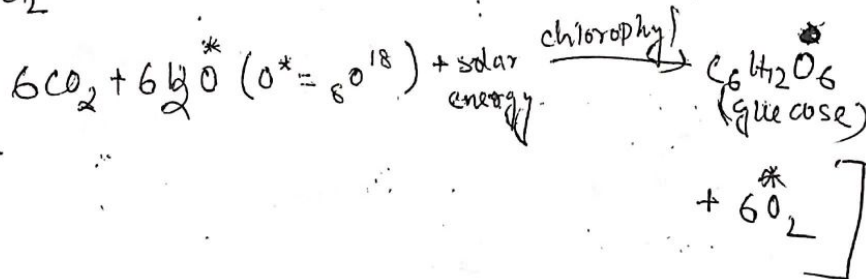 6CO₂ + 6H₂O* (O* = ₈O¹⁸) + solar energy chlorophyl → C₆H₁₂O₆
(glucose)
+ 6O₂* ]